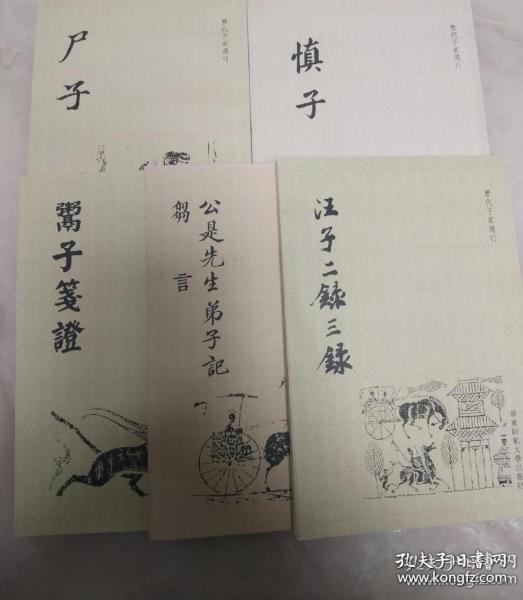 尸子
歷代子家選刊
慎子
歷代子家選刊
鬻子箋證
公是先生弟子記
芻言
汪子二録三録
歷代子家選刊
華東師範大學出版社
孔夫子旧书网
www.kongfz.com